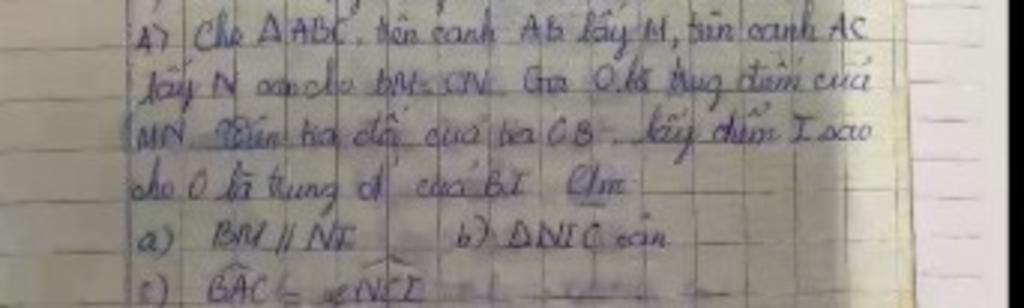 A) Cho ΔABC, trên cạnh AB lấy M, trên cạnh AC
lấy N sao cho BM = CN Gọi O là trung điểm của
MN Trên tia đối của tia CB lấy điểm I sao
cho O là trung đ của BI C/m
a) BM // NI b) ΔNIC cân
c) BAC = NCI